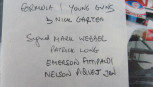 FORMULA 1 YOUNG GUNS
by NICK GARTON
Signed MARK WEBBER
PATRICK LONG
EMERSON FITTIPALDI
NELSON PIQUET JNR